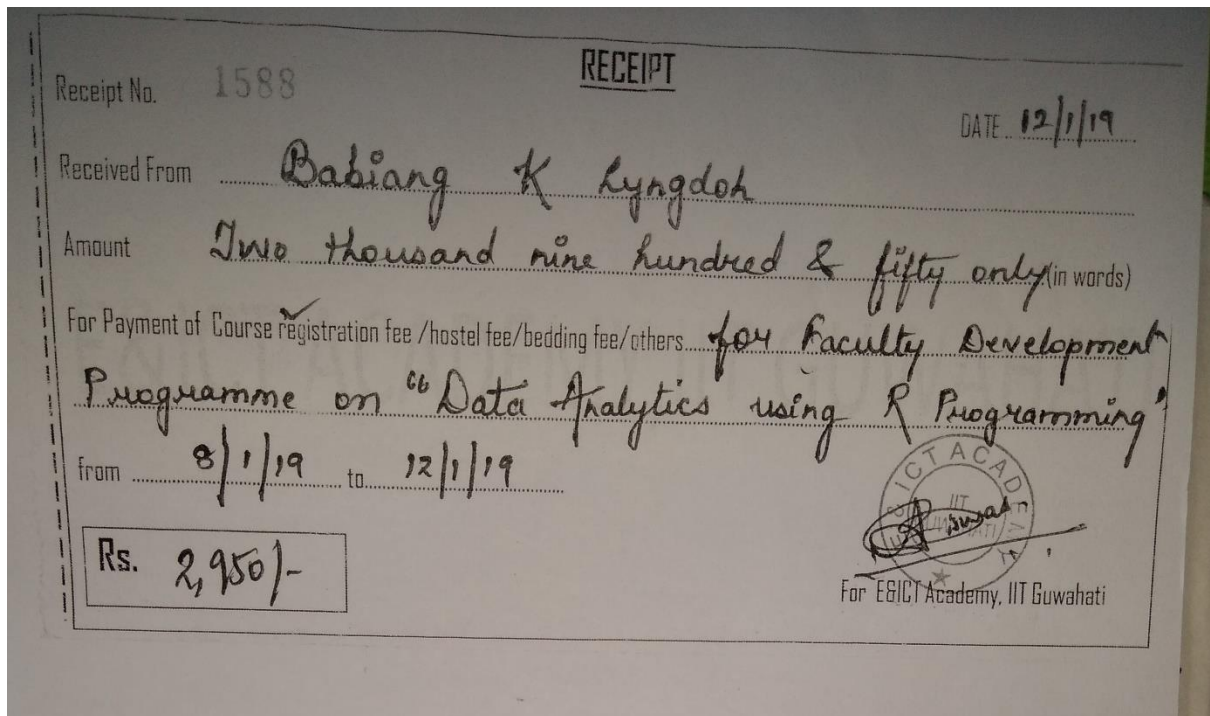 RECEIPT
Receipt No. 1588
DATE 12/1/19
Received From Babiang K Lyngdoh
Amount Two thousand nine hundred & fifty only (in words)
For Payment of Course registration fee /hostel fee/bedding fee/others for Faculty Development
Programme on "Data Analytics using R Programming"
from 8/1/19 to 12/1/19
E & ICT ACADEMY
IIT
GUWAHATI
Rs. 2,950/-
For E&ICT Academy, IIT Guwahati